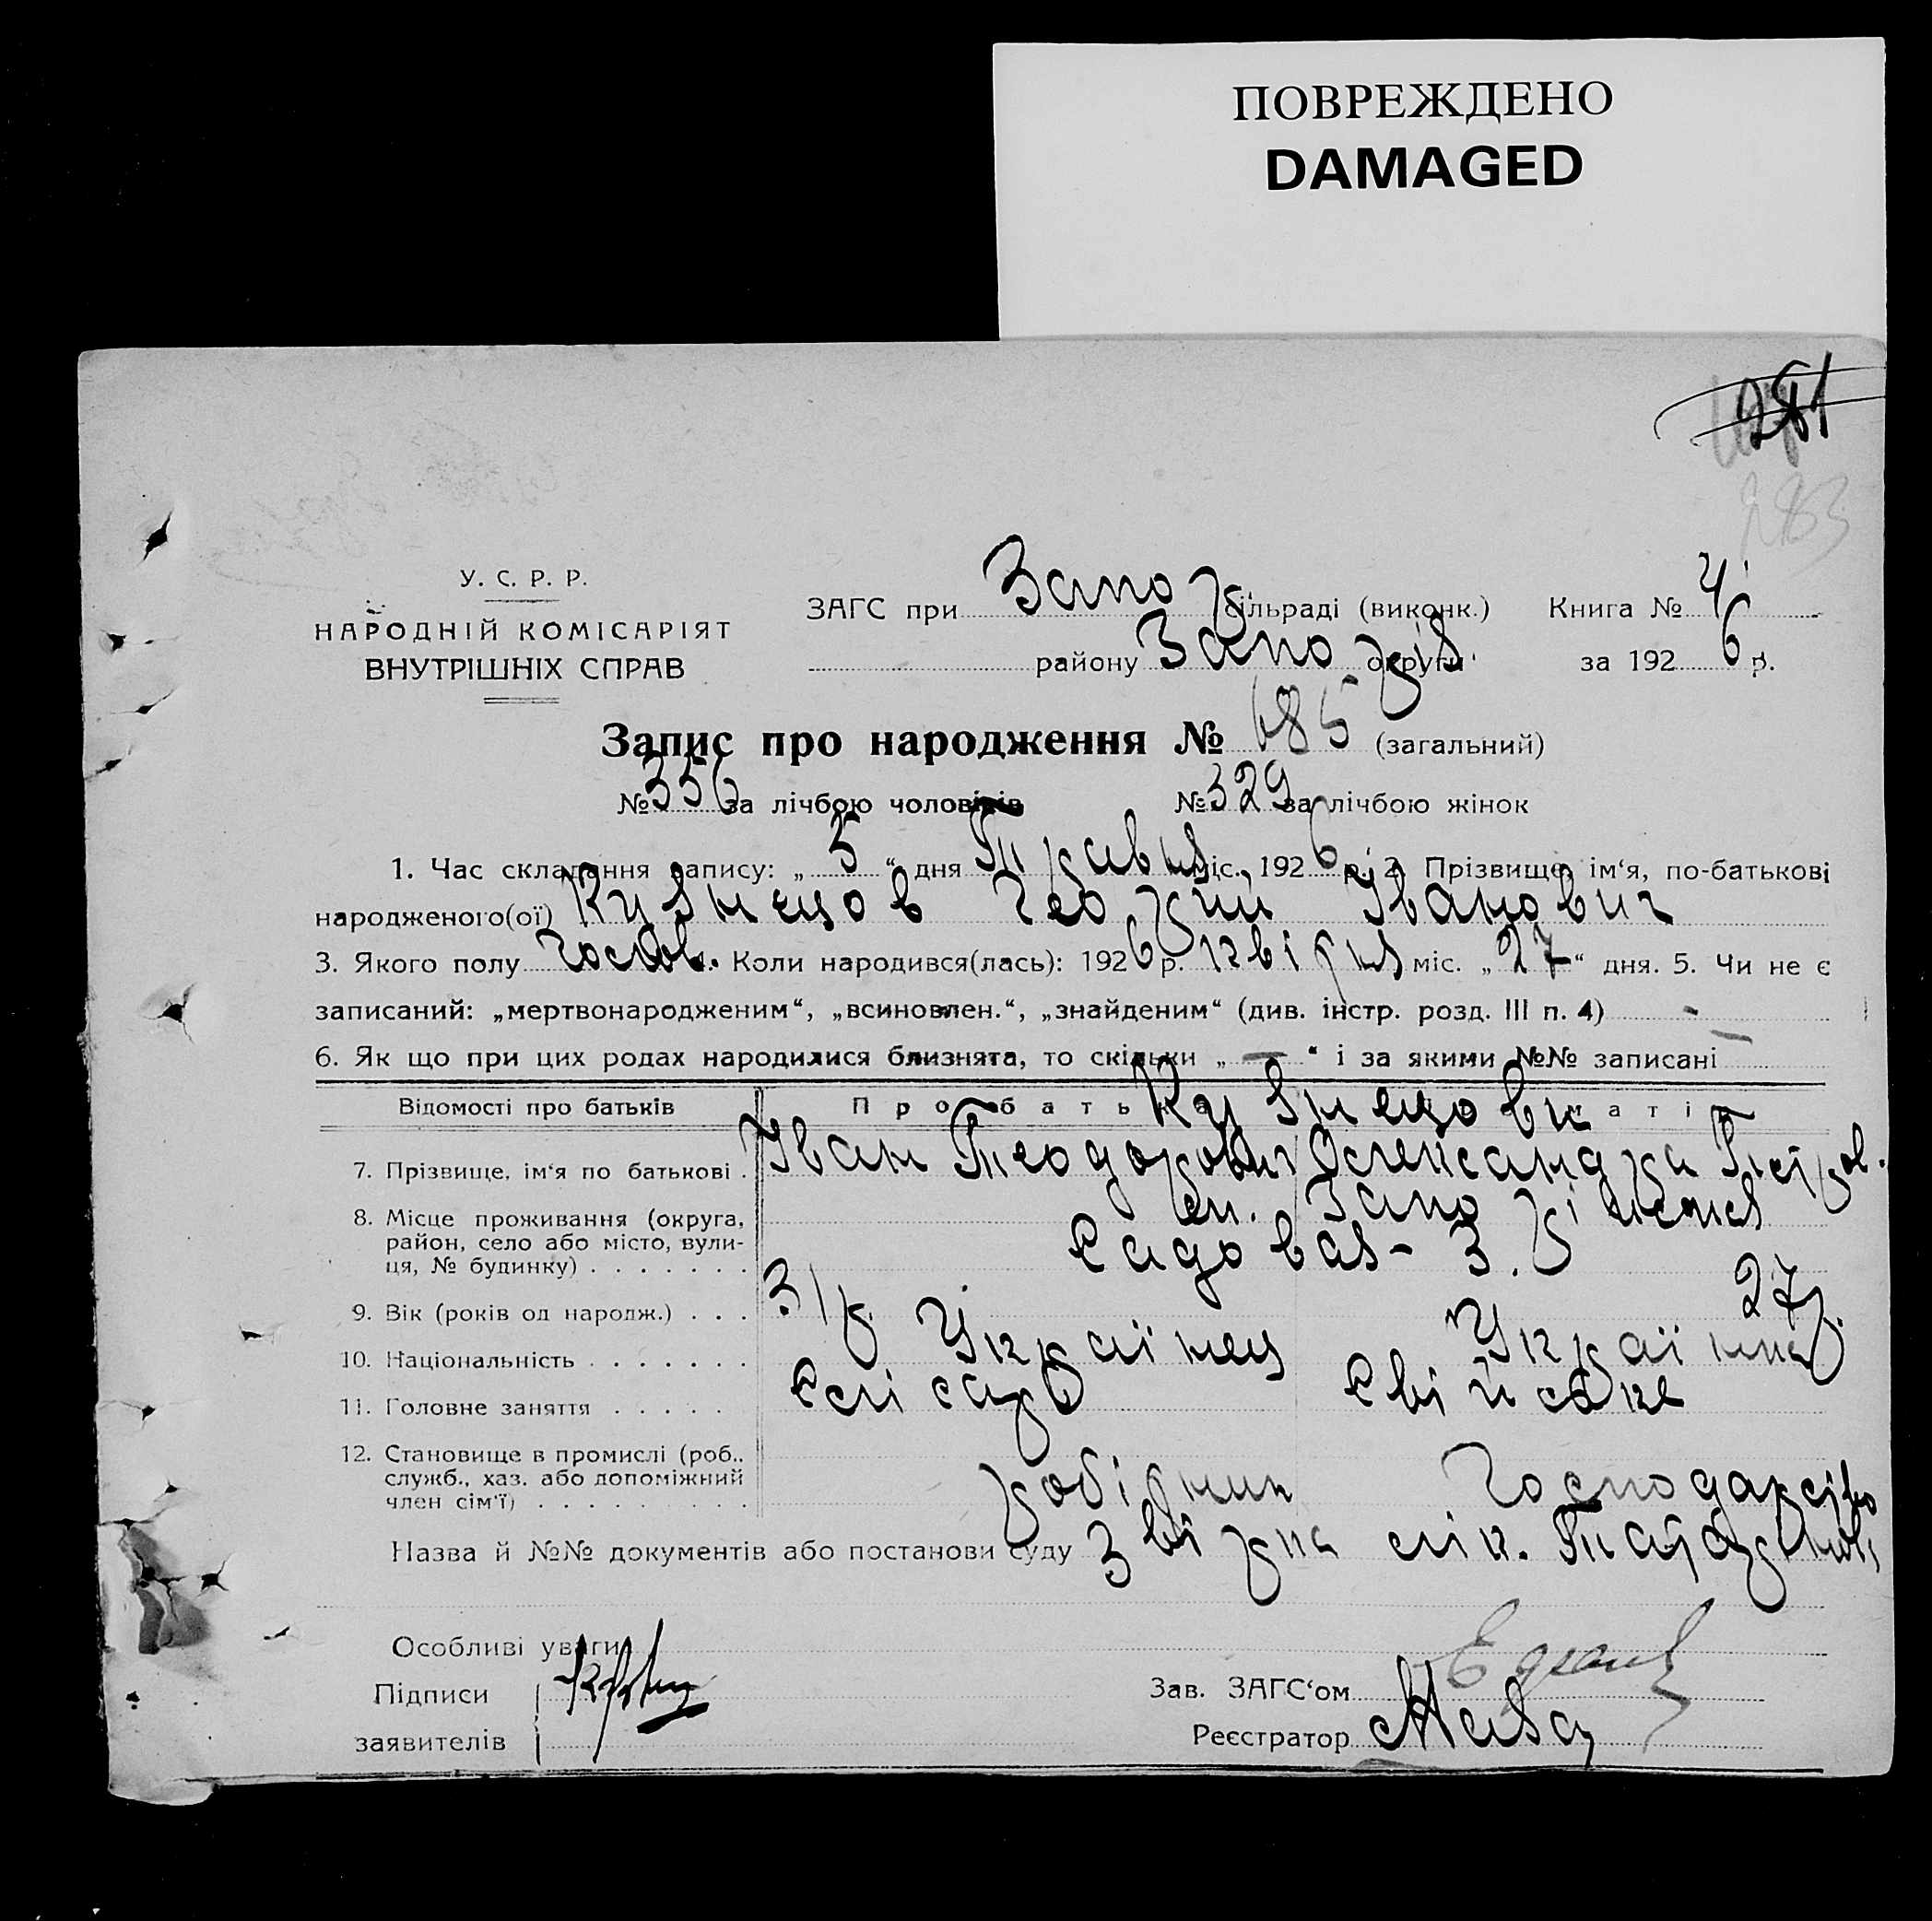 ПОВРЕЖДЕНО
DAMAGED
281
283
У. С. Р. Р.
НАРОДНІЙ КОМІСАРІЯТ
ВНУТРІШНІХ СПРАВ
ЗАГС при Запор сільраді (виконк.) Книга № 4
району Запоріз. округи за 1926 р.
Запис про народження № 685 (загальний)
№ 356 за лічбою чоловіків № 329 за лічбою жінок
1. Час складання запису: „5“ дня Травня міс. 1926 р. 2. Прізвище, ім‘я, по-батькові
народженого(ої) Кузнецов Георгий Іванович
3. Якого полу чолов. Коли народився(лась): 1926 р. квітня міс. „27“ дня. 5. Чи не є
записаний: „мертвонародженим“, „всиновлен.“, „знайденим“ (див. інстр. розд. III п. 4) -
6. Як що при цих родах народилися близнята, то скільки „—“ і за якими №№ записані —
Відомості про батьків Про батька матір
Кузнецови
7. Прізвище, ім‘я по батькові . Іван Теодорович Олександра Петров.
8. Місце проживання (округа, район, село або місто, вулиця, № будинку) . . . . . . . ст. Запоріжжя
Садовая - 3.
9. Вік (років од народж.) . . . 31 р. 27 р.
10. Національність . . . . . . . Українец Українка
11. Головне заняття . . . . . Слісарь Свійське
12. Становище в промислі (роб., служб., хаз. або допоміжний член сім‘ї) . . . . . . . . . робітник Господарство
Назва й №№ документів або постанови суду Звірка лік.
Особливі уваги
Підписи
заявителів
Зав. ЗАГС‘ом
Реєстратор